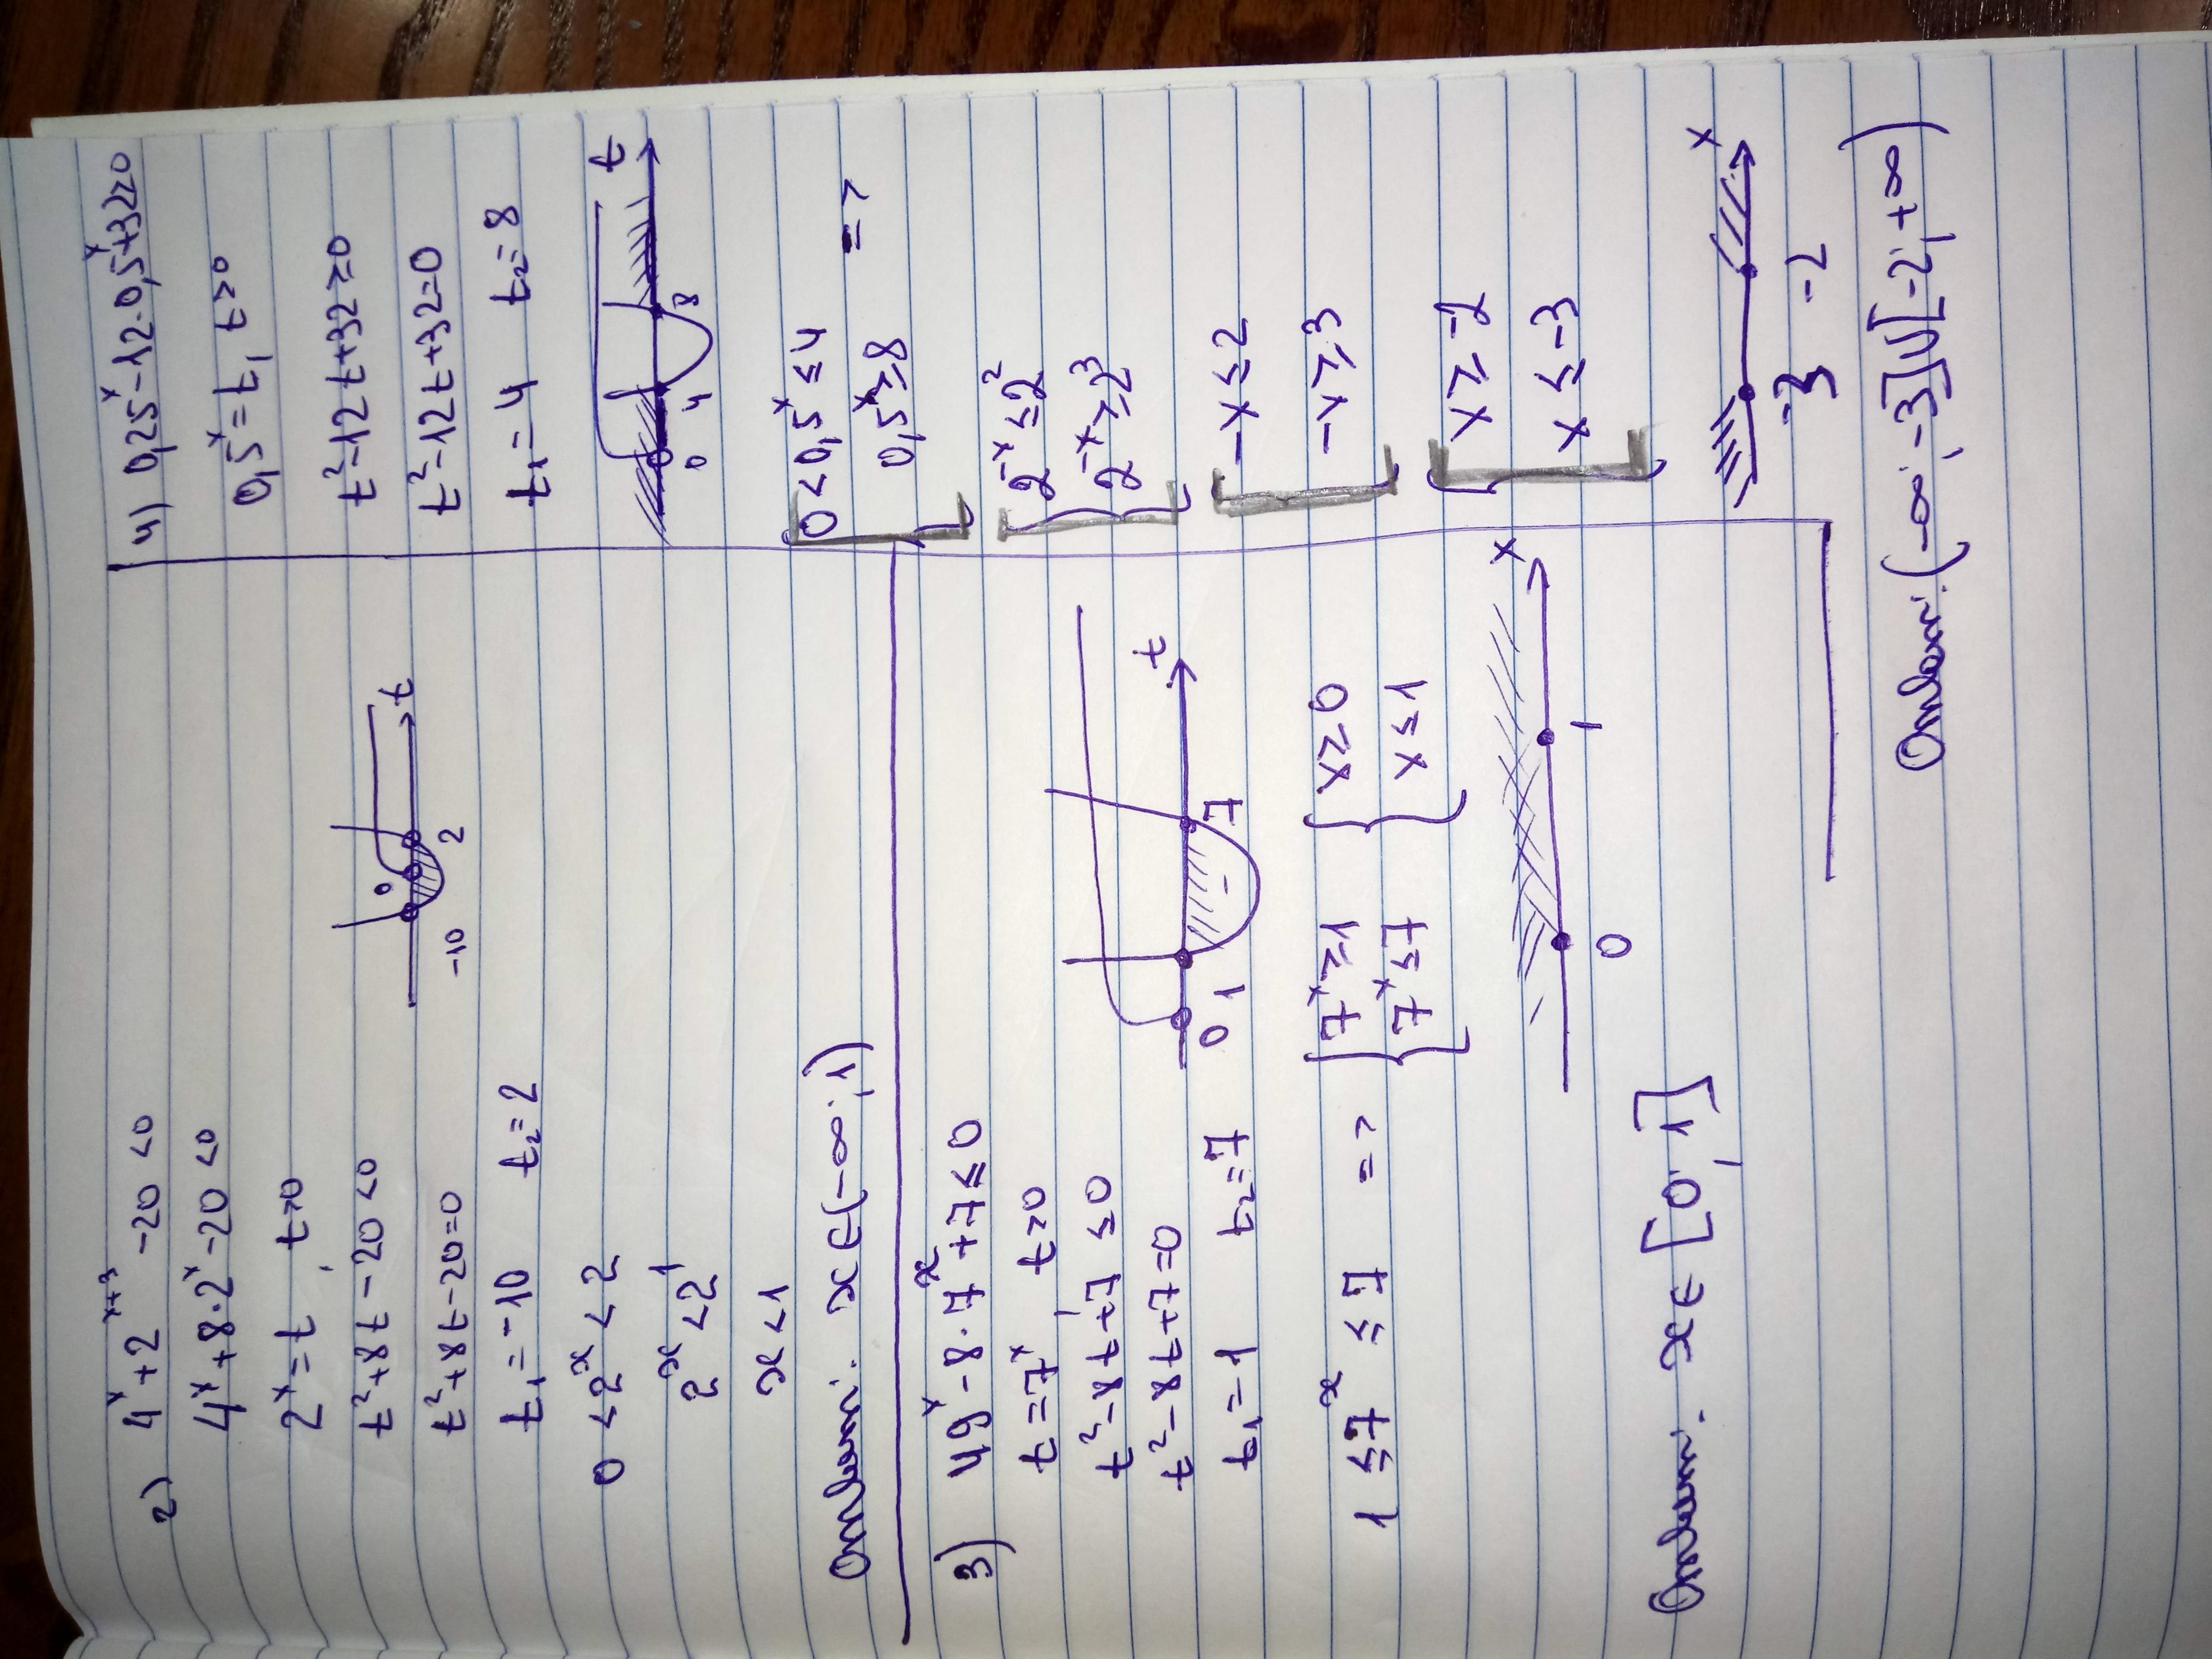 2) 4ˣ+2ˣ⁺³ -20 <0
4ˣ+8·2ˣ-20 <0
2ˣ=t, t>0
t²+8t-20<0
t²+8t-20=0
t₁=-10 t₂=2
0 <2ˣ<2
2ˣ<2¹
x<1
Ответ: x∈(-∞;1)
0
t
-10 2
3) 49ˣ-8·7ˣ+7≤0
t=7ˣ, t>0
t²-8t+7≤0
t²-8t+7=0
t₁=1 t₂=7
t
0 1 7
-
1 ≤7ˣ ≤7 => { 7ˣ≥1 { x≥0
7ˣ≤7 x≤1
x
0 1
Ответ: x∈[0;1]
4) 0,25ˣ-12·0,5ˣ+32≥0
0,5ˣ=t, t>0
t²-12t+32≥0
t²-12t+32=0
t₁=4 t₂=8
t
0 4 8
[ 0<0,5ˣ≤4
0,5ˣ≥8 =>
[ 2⁻ˣ≤2²
2⁻ˣ≥2³
[ -x≤2
-x≥3
[ x≥-2
x≤-3
x
-3 -2
Ответ: (-∞;-3]U[-2;+∞)